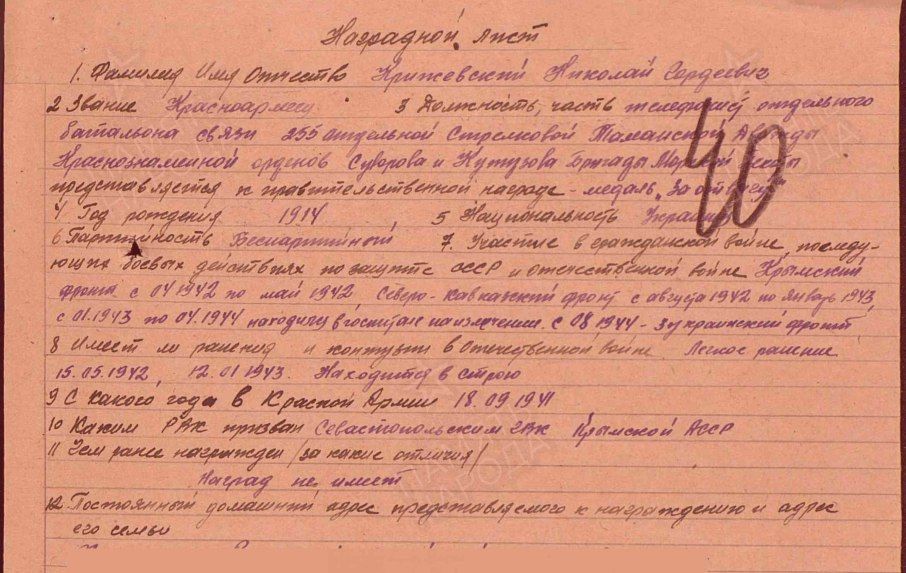 Наградной лист
1. Фамилия Имя Отчество Крижевский Николай Гордеевич
2 Звание Красноармеец 3 Должность, часть телефонист отдельного
батальона связи 255 отдельной Стрелковой Таманской Дважды
Краснознаменной орденов Суворова и Кутузова Бригады Морской
представляется к правительственной награде - медаль "За отвагу"
4 Год рождения 1914 5 Национальность Украинец
6 Партийность Беспартийный 7. Участие в гражданской войне, последу-
ющих боевых действиях по защите СССР и отечественной войне Крымский
фронт с 04 1942 по май 1942, Северо-Кавказский фронт с августа 1942 по январь 1943,
с 01.1943 по 04.1944 находился в госпитале на излечении. с 08 1944 - 3 украинский фронт
8 Имеет ли ранения и контузии в отечественной войне Легкое ранение
15.05.1942, 12.01 1943 Находится в строю
9 С какого года в Красной Армии 18.09 1941
10 Каким РВК призван Севастопольским ГВК Крымской АССР
11 Чем ранее награжден /за какие отличия/
Наград не имеет
12 Постоянный домашний адрес представляемого к награждению и адрес
его семьи
40